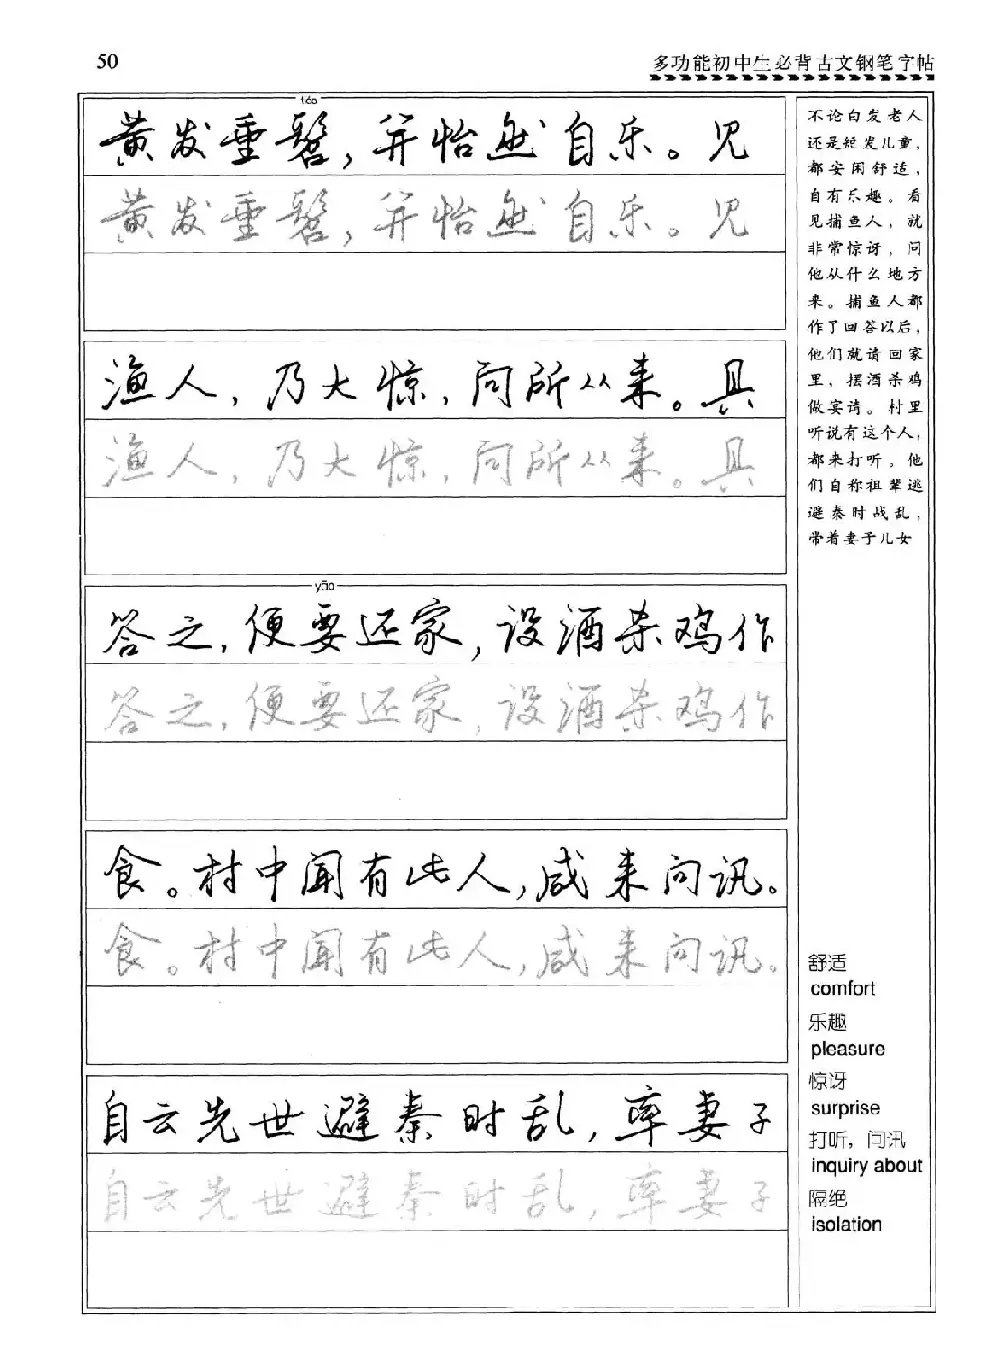 50
多功能初中生必背古文钢笔字帖
tiáo
黄发垂髫，并怡然自乐。见
黄发垂髫，并怡然自乐。见
渔人，乃大惊，问所从来。具
渔人，乃大惊，问所从来。具
yāo
答之，便要还家，设酒杀鸡作
答之，便要还家，设酒杀鸡作
食。村中闻有此人，咸来问讯。
食。村中闻有此人，咸来问讯。
自云先世避秦时乱，率妻子
自云先世避秦时乱，率妻子
不论白发老人
还是短发儿童，
都安闲舒适，
自有乐趣。看
见捕鱼人，就
非常惊讶，问
他从什么地方
来。捕鱼人都
作了回答以后，
他们就请回家
里，摆酒杀鸡
做宴请。村里
听说有这个人，
都来打听。他
们自称祖辈逃
避秦时战乱，
带着妻子儿女
舒适
comfort
乐趣
pleasure
惊讶
surprise
打听，问讯
inquiry about
隔绝
isolation